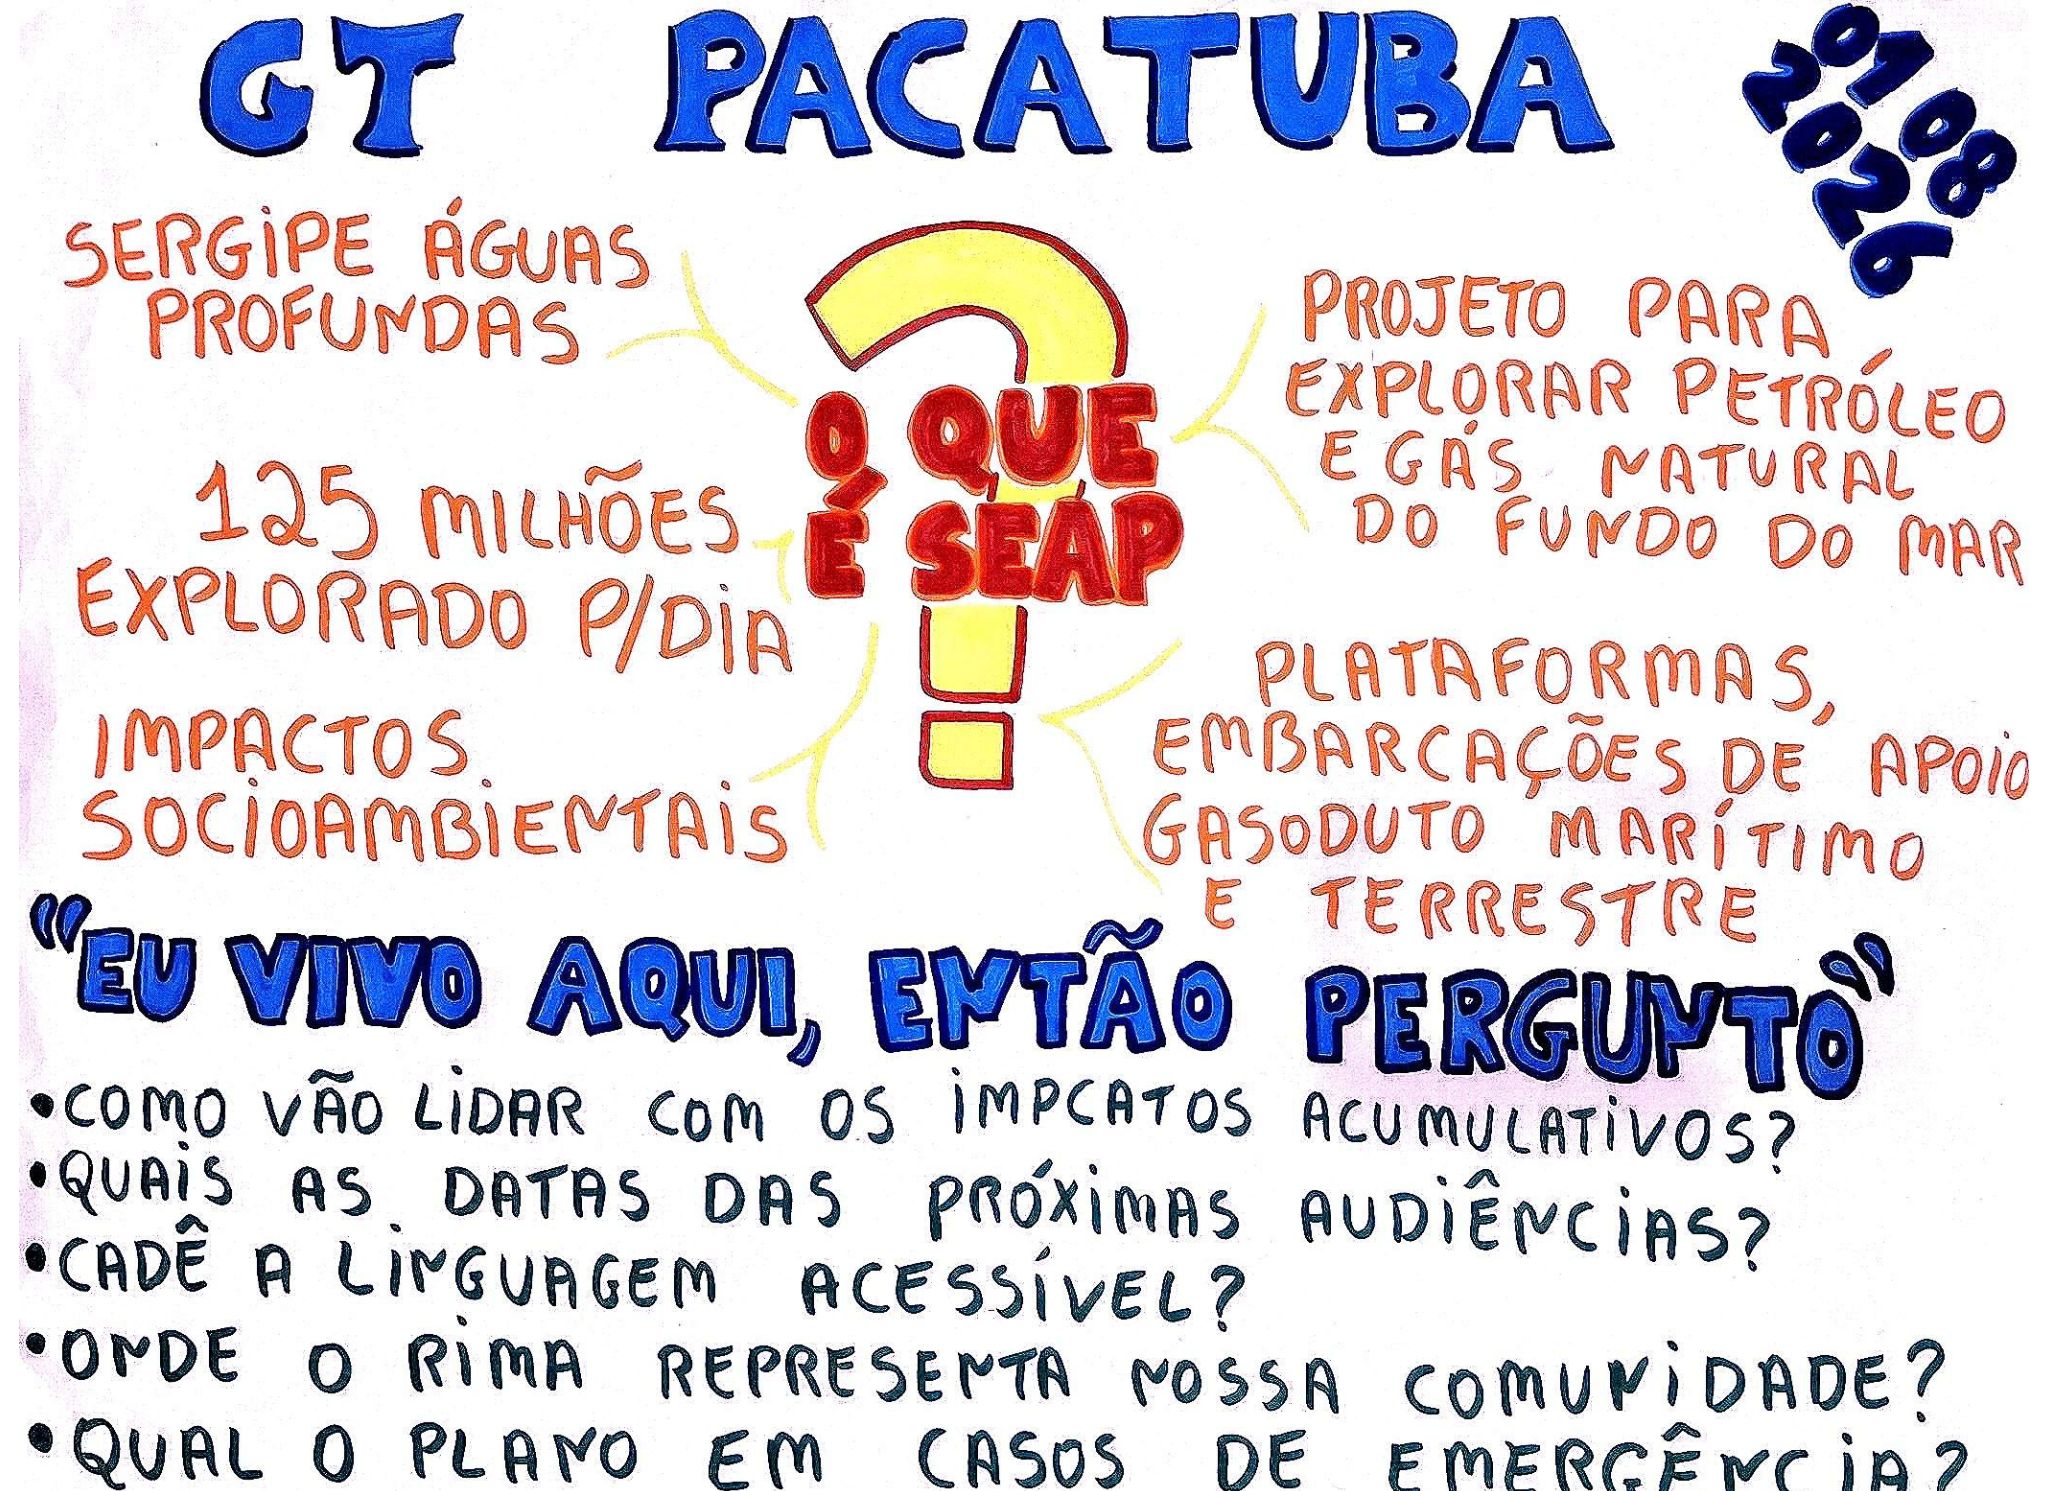 GT PACATUBA
01 08
2026
SERGIPE ÁGUAS
PROFUNDAS
125 MILHÕES
EXPLORADO P/DIA
IMPACTOS
SOCIOAMBIENTAIS
O QUE
É SEAP
PROJETO PARA
EXPLORAR PETRÓLEO
E GÁS NATURAL
DO FUNDO DO MAR
PLATAFORMAS,
EMBARCAÇÕES DE APOIO
GASODUTO MARÍTIMO
E TERRESTRE
"EU VIVO AQUI, ENTÃO PERGUNTO"
•COMO VÃO LIDAR COM OS IMPCATOS ACUMULATIVOS?
•QUAIS AS DATAS DAS PRÓXIMAS AUDIÊNCIAS?
•CADÊ A LINGUAGEM ACESSÍVEL?
•ONDE O RIMA REPRESENTA NOSSA COMUNIDADE?
•QUAL O PLANO EM CASOS DE EMERGÊNCIA?